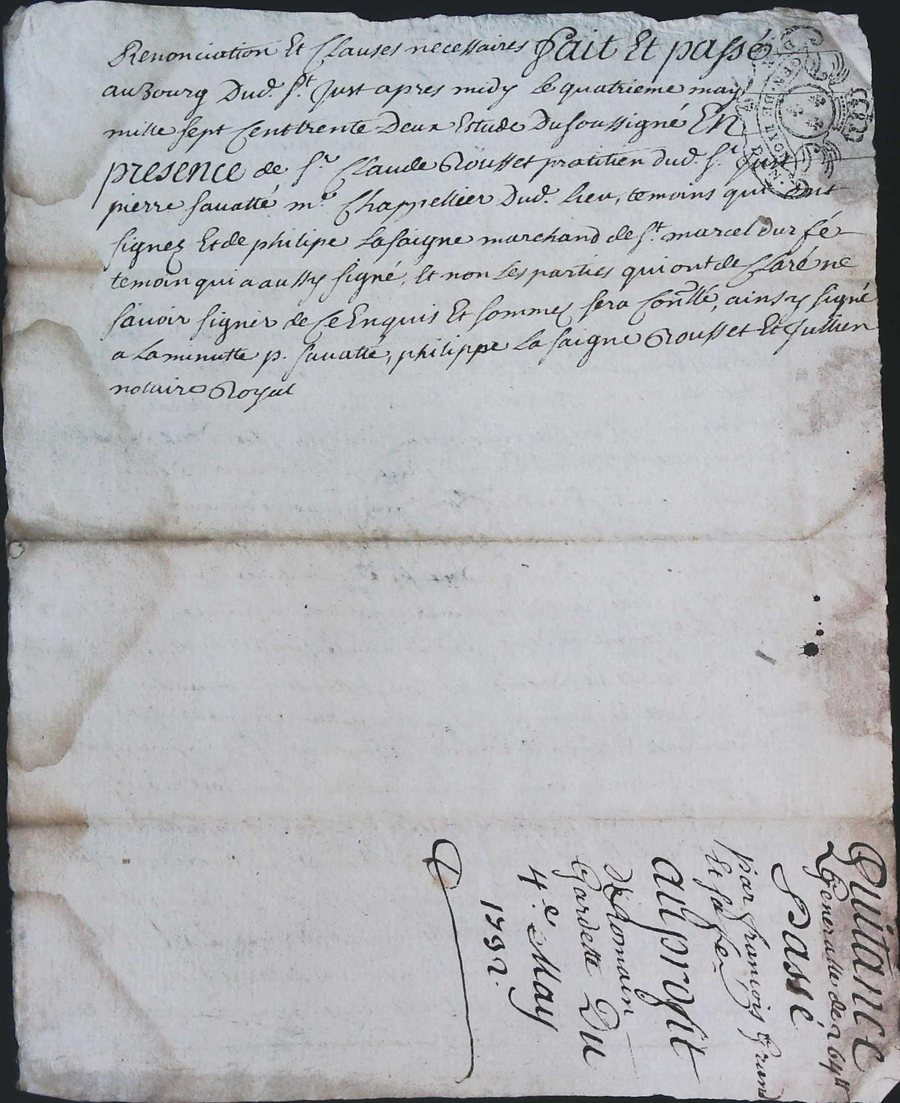 Renonciation Et Clauses necessaires fait Et passé
au Bourg Dud. St. Just apres midy Le quatrieme may
mille sept Cent trente Deux Estude Du soussigné En
presence de Sr. Claude Rousset pratitien dud. St. Just
pierre savatté me. Chappellier Dud. Lieu, temoins qui ont
signez Et de philipe La saigne marchand de St. marcel durfé
temoin qui a aussy signé, Et non Les parties qui ont de Claré ne
savoir signer de Ce Enquis Et sommez sera Conllé, ainsy signé
a La minutte p. savatté, philippe La saigne Rousset Et Jullien
notaire Royal
GEN. DE
Quitance
Generalle de
Passé
par françois
Et sa fe
au profit
de Romain
Gardette Du
4.e May
1732.